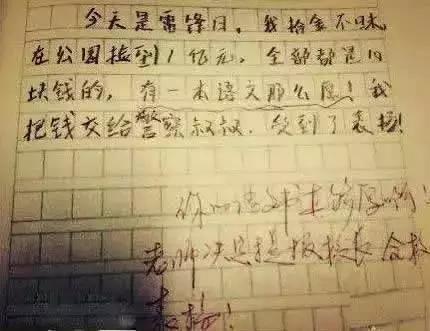 今天是雷锋日，我拾金不昧，
在公园捡到1亿元，全部都是10
块钱的，有一本语文那么厚！我
把钱交给警察叔叔，受到了表扬！
你的语文书真够厚的啊！
老师决定提报校长全校
表扬！